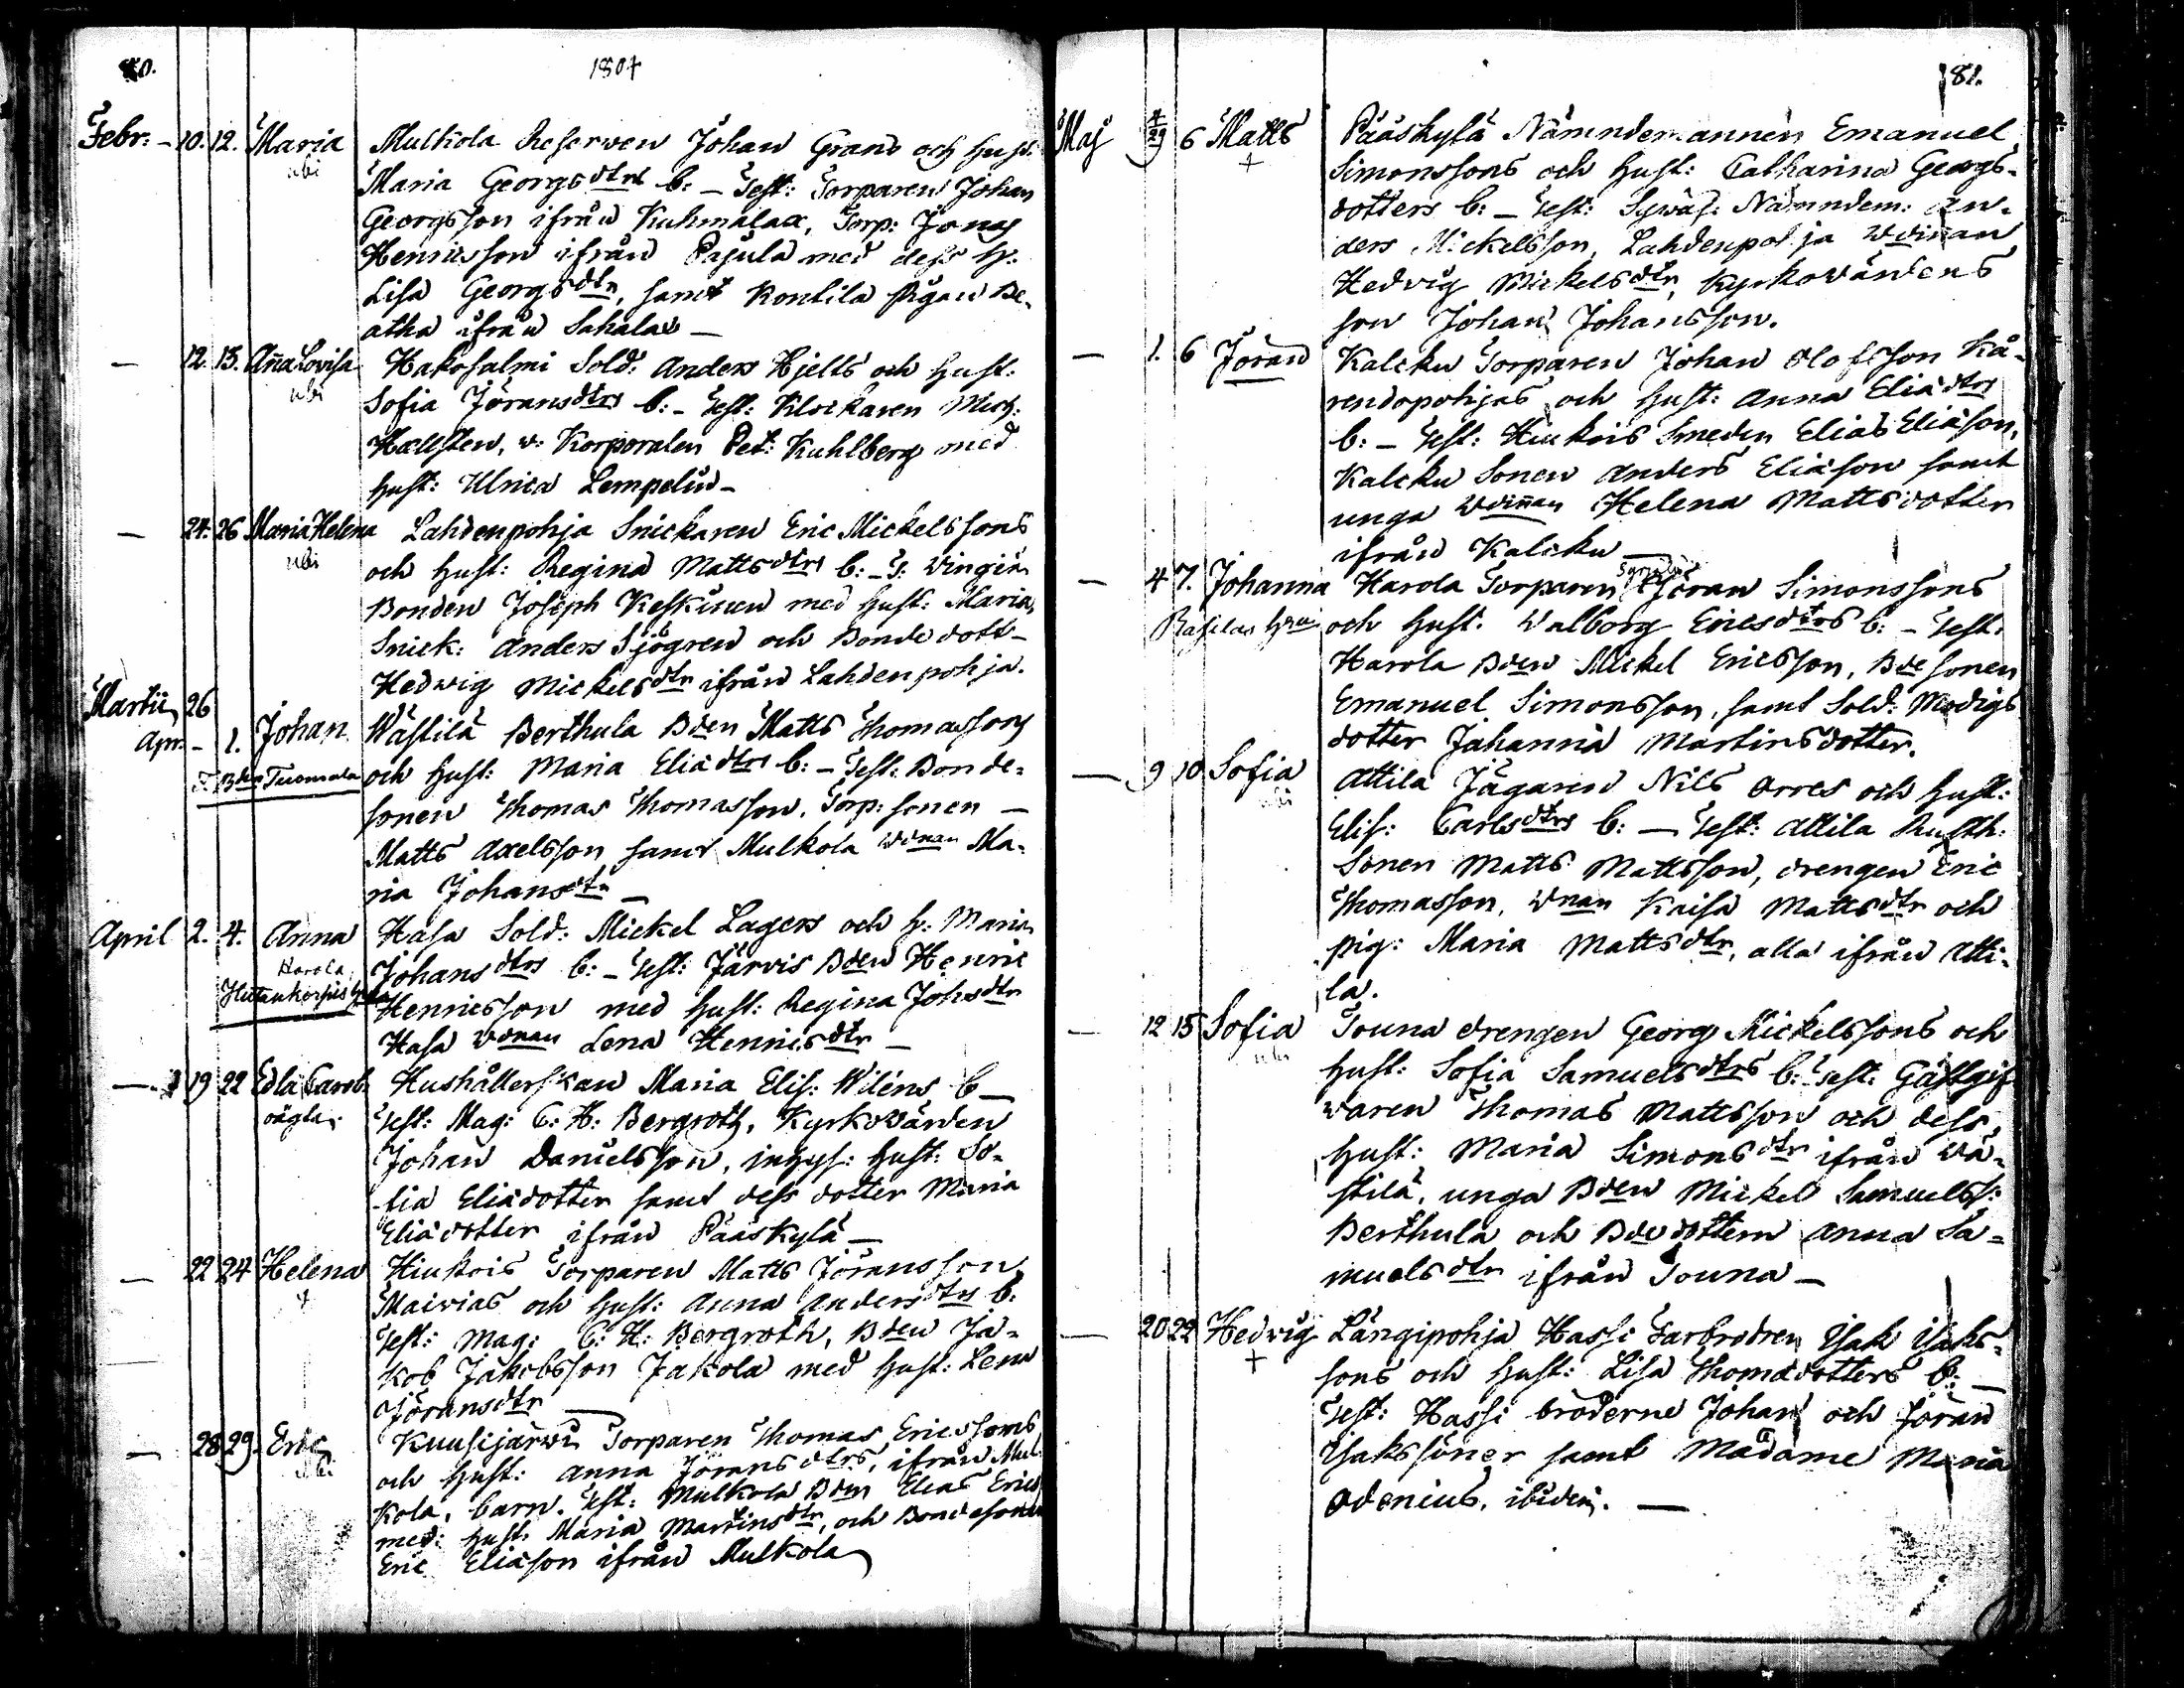 80.
1807
Febr: - 10. 12. Maria Mulkola Reserwen Johan Grans och hust:
ubi Maria Georgsdtrs b: - Test: Torparen Johan
Georgsson ifrån Kuhmalax, Torp: Jonas
Henricsson ifrån Pajula med dess h:
Lisa Georgsdtr, samt Kontila Pigan Be-
atha ifrån Sahalax -
- 12. 13. Anna Lovisa Hakosalmi Sold: Anders Hjelts och hust:
ubi Sofia Jöransdtrs b: - Test: Klockaren Mich:
Hallsten, v. Korporalen Pet: Kuhlberg med
hust: Ulrica Lempelin -
- 24. 26 Maria Helena Lahdenpohja Snickaren Eric Mickelssons
ubi och hust: Regina Mattsdtrs b: - T:
Bonden Joseph Keskinen med hust: Maria,
Snick: Anders Sjögren och Bonde dott-
Hedwig Mickelsdtr ifrån Lahdenpohja.
Martii 26
Apr - 1. Johan Wästilä Berthula Bden Matts Thomassons
Tuomala och hust: Maria Eliädtrs b: - Test: Bonde-
sonen Thomas Thomasson, Torp: sonen -
Matts Axelsson samt Mulkola Ma-
ria Johansdtr -
April 2. 4. Anna Hasa Sold: Mickel Lagers och h: Maria
Harola Johansdtrs b: - Test: Järvis Bden Henric
Henricsson med hust: Regina Johsdtr
Hasa Lena Henricsdtr -
- 19 22 Edla Carol: Hushållerskan Maria Elis: Wiléns b -
oägta. Test: Mag: C: H: Bergroth, Kyrkovärden
Johan Danielsson, inhys: hust: So-
fia Eliädotter samt dess dotter Maria
Eliädotter ifrån Pääskylä -
- 22 24 Helena Hiukois Torparen Matts Jöransson
+ Maivias och hust: Anna Andersdtrs b:
Test: Mag: C: H: Bergroth, Bden Ja-
kob Jakobsson Jakola med hust: Lena
Jöransdtr -
- 28 29. Eric Kuusijärwi Torparen Thomas Ericssons
ubi och hust: Anna Jöransdtrs, ifrån Mul-
kola, barn. Test: Mulkola Bden Elias Erics
med: hust: Maria Martinsdtr, och Bondesonen
Eric Eliäson ifrån Mulkola
81.
Maj 4/29 6 Matts Pääskylä Nämndemannen Emanuel
+ Simonssons och hust: Catharina Georgs-
dotters b: - Test: Nämndem: An-
ders Mickelsson, Lahdenpohja
Hedvig Mickelsdtr, Kyrkowärdens
son Johan Johansson.
- 1. 6 Jöran Kaleku Torparen Johan Olofsson Kå-
rendopohjas och hust: Anna Eliädtrs
b: - Test: Hiukois Smeden Elias Eliäson,
Kaleku Sonen Anders Eliäson samt
unga Helena Mattsdotter
ifrån Kaleku -
- 4 7. Johanna Harola Torparen Jöran Simonssons
och hust: Walborg Ericsdtrs b: - Test:
Harola Bden Mickel Ericsson, Bde sonen
Emanuel Simonsson, samt Sold: Modigs
dotter Johanna Martinsdotter.
- 9 10 Sofia Attila Jägaren Nils Orres och hust:
ubi Elis: Carlsdtrs b: - Test: Attila Rusth:
Sonen Matts Mattsson, drengen Eric
Thomasson, Kaisa Mattsdtr och
pig: Maria Mattsdtr, alla ifrån Atti-
la.
- 12 15 Sofia Touna drengen Georg Mickelssons och
ubi hust: Sofia Samuelsdtrs b: Test: Gästgif-
waren Thomas Mattsson och dess
hust: Maria Simonsdtr ifrån Wä-
stilä, unga Bden Mickel Samuelss:
Berthula och Bde dottern Anna Sa-
muelsdtr ifrån Touna -
- 20 22 Hedvig Längipohja Hassi Farbrodren Isak Isaks-
+ sons och hust: Lisa Thomädotters b: -
Test: Hassi bröderne Johan och Jöran
Isakssöner samt Madame Maria
Odenius, ibidem. -